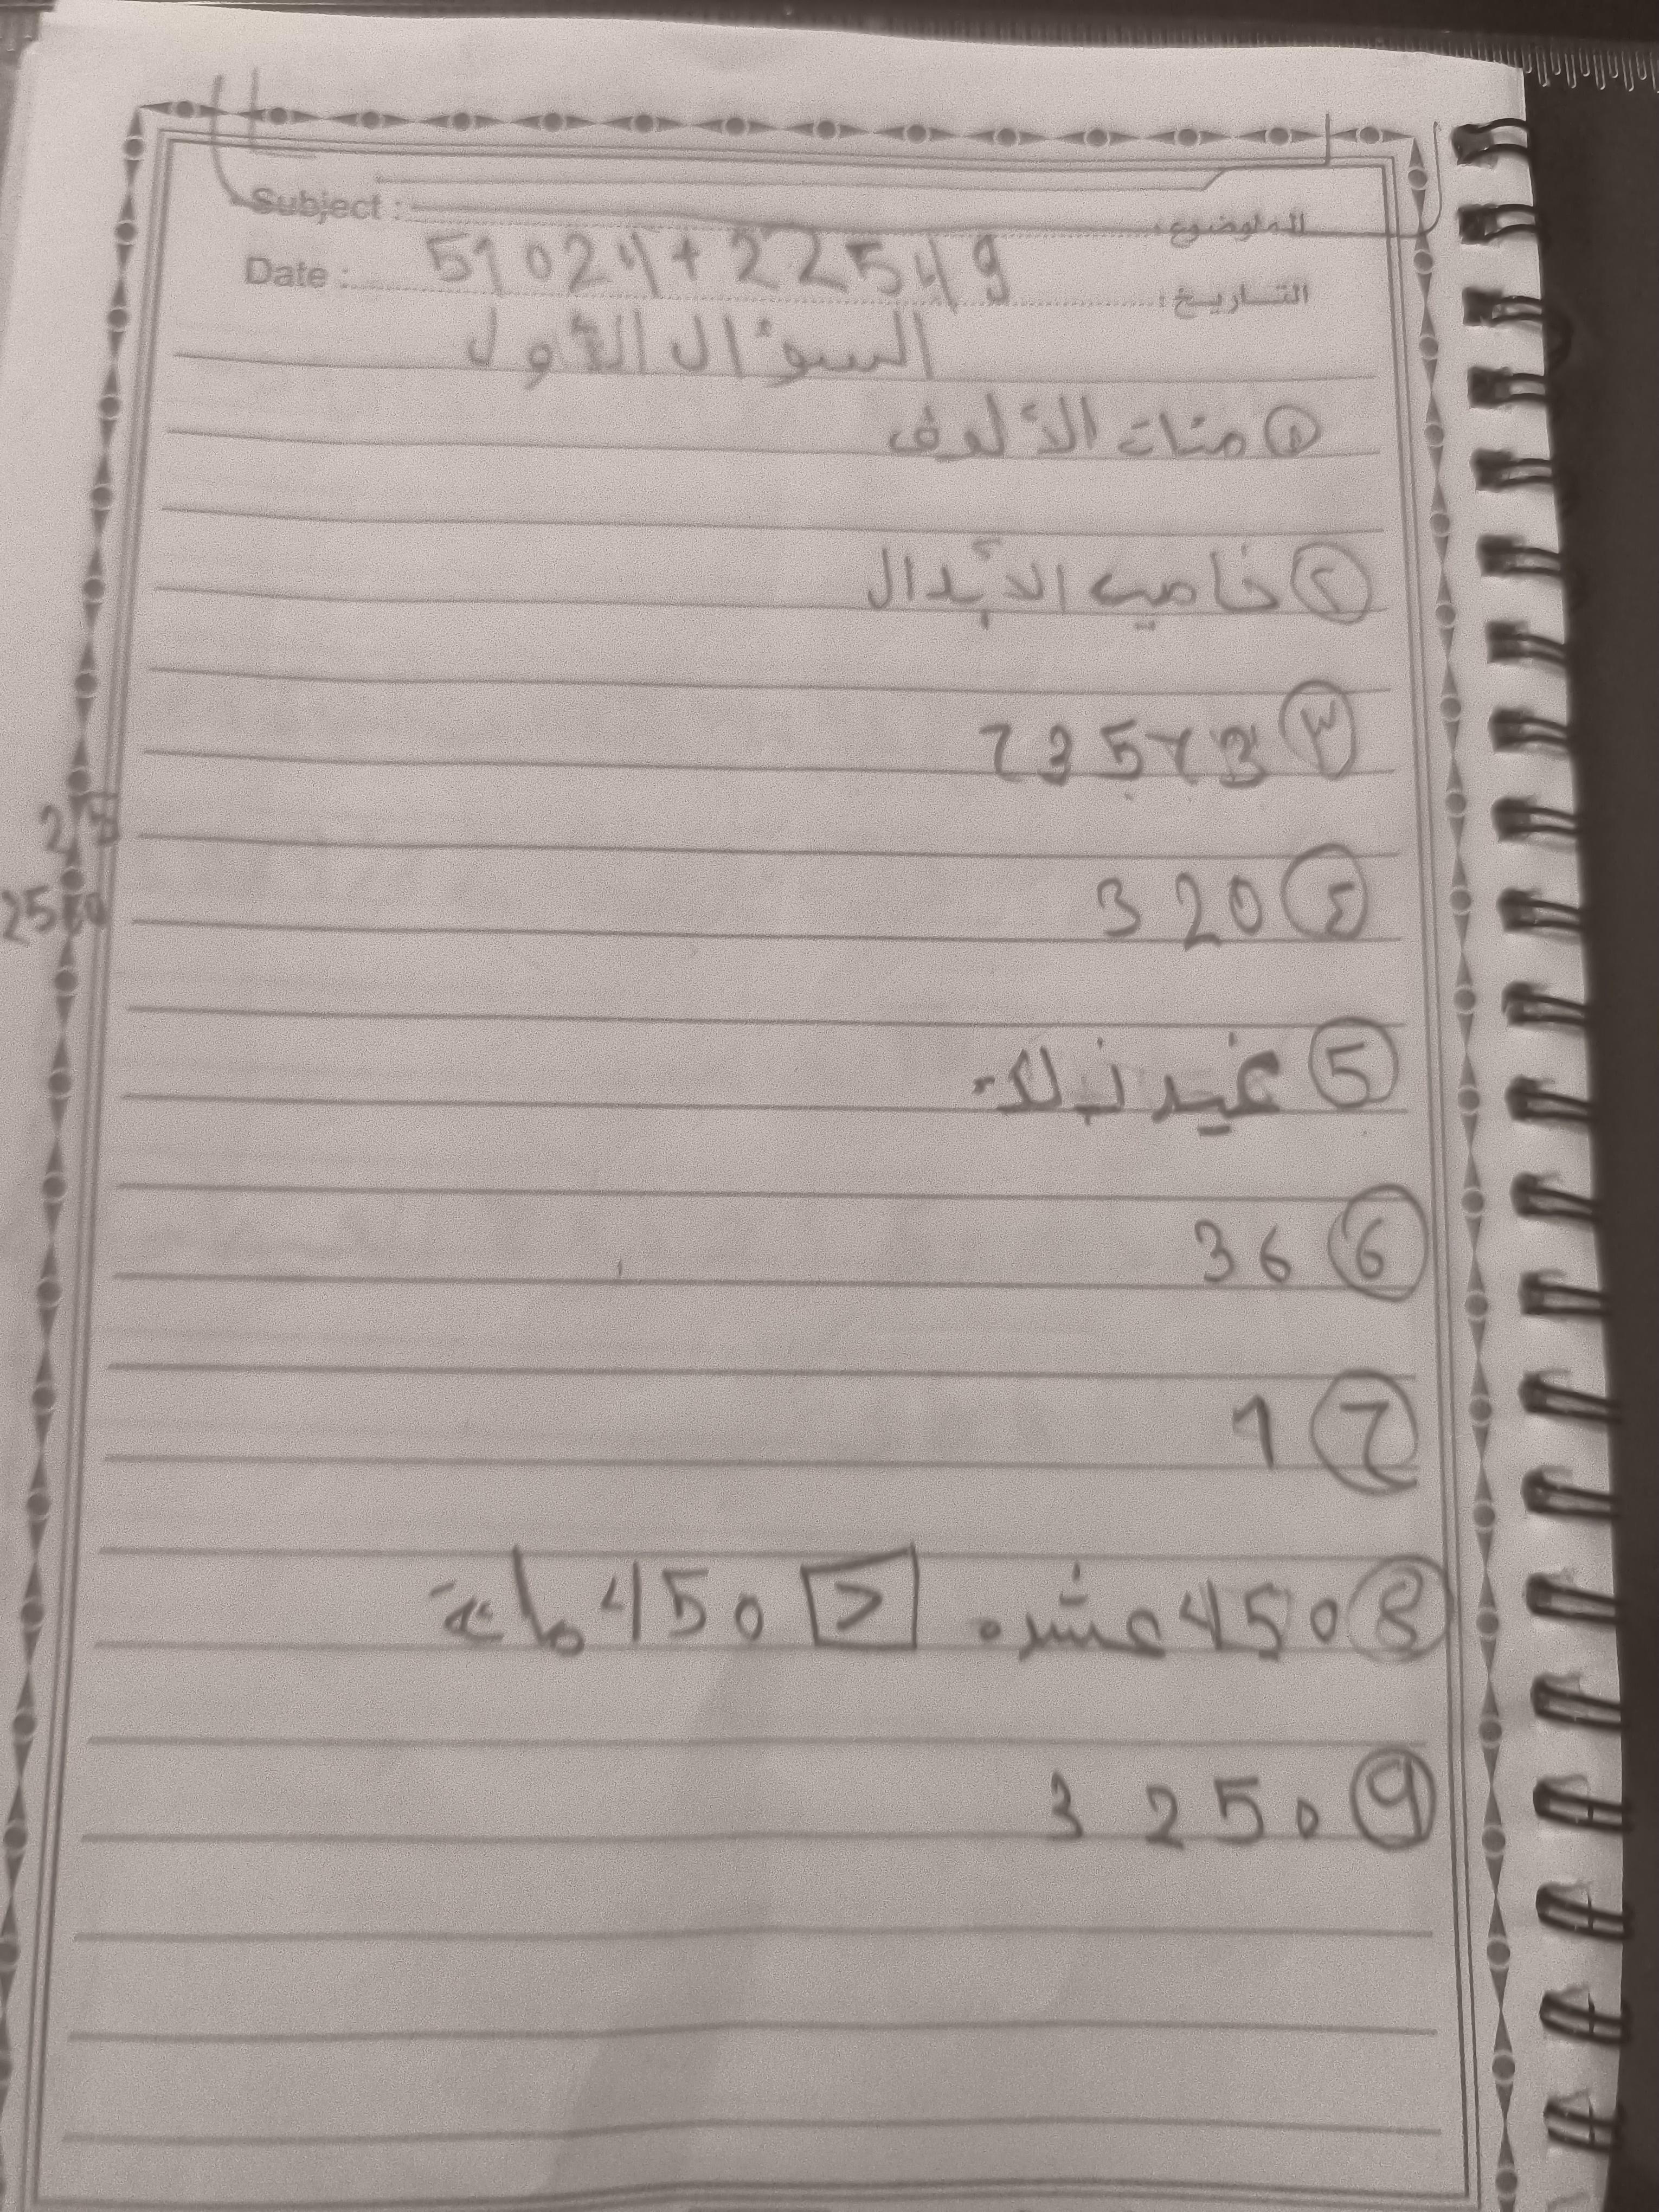 Subject : الموضوع:
Date : 51024+22549 التاريخ:
السؤال الأول
① مئات الألوف
② خاصية الأبدال
③ 73573
④ 320
⑤ غير ذلك
⑥ 36
⑦ 1
⑧ 450 عشره > 450 مائة
⑨ 3250